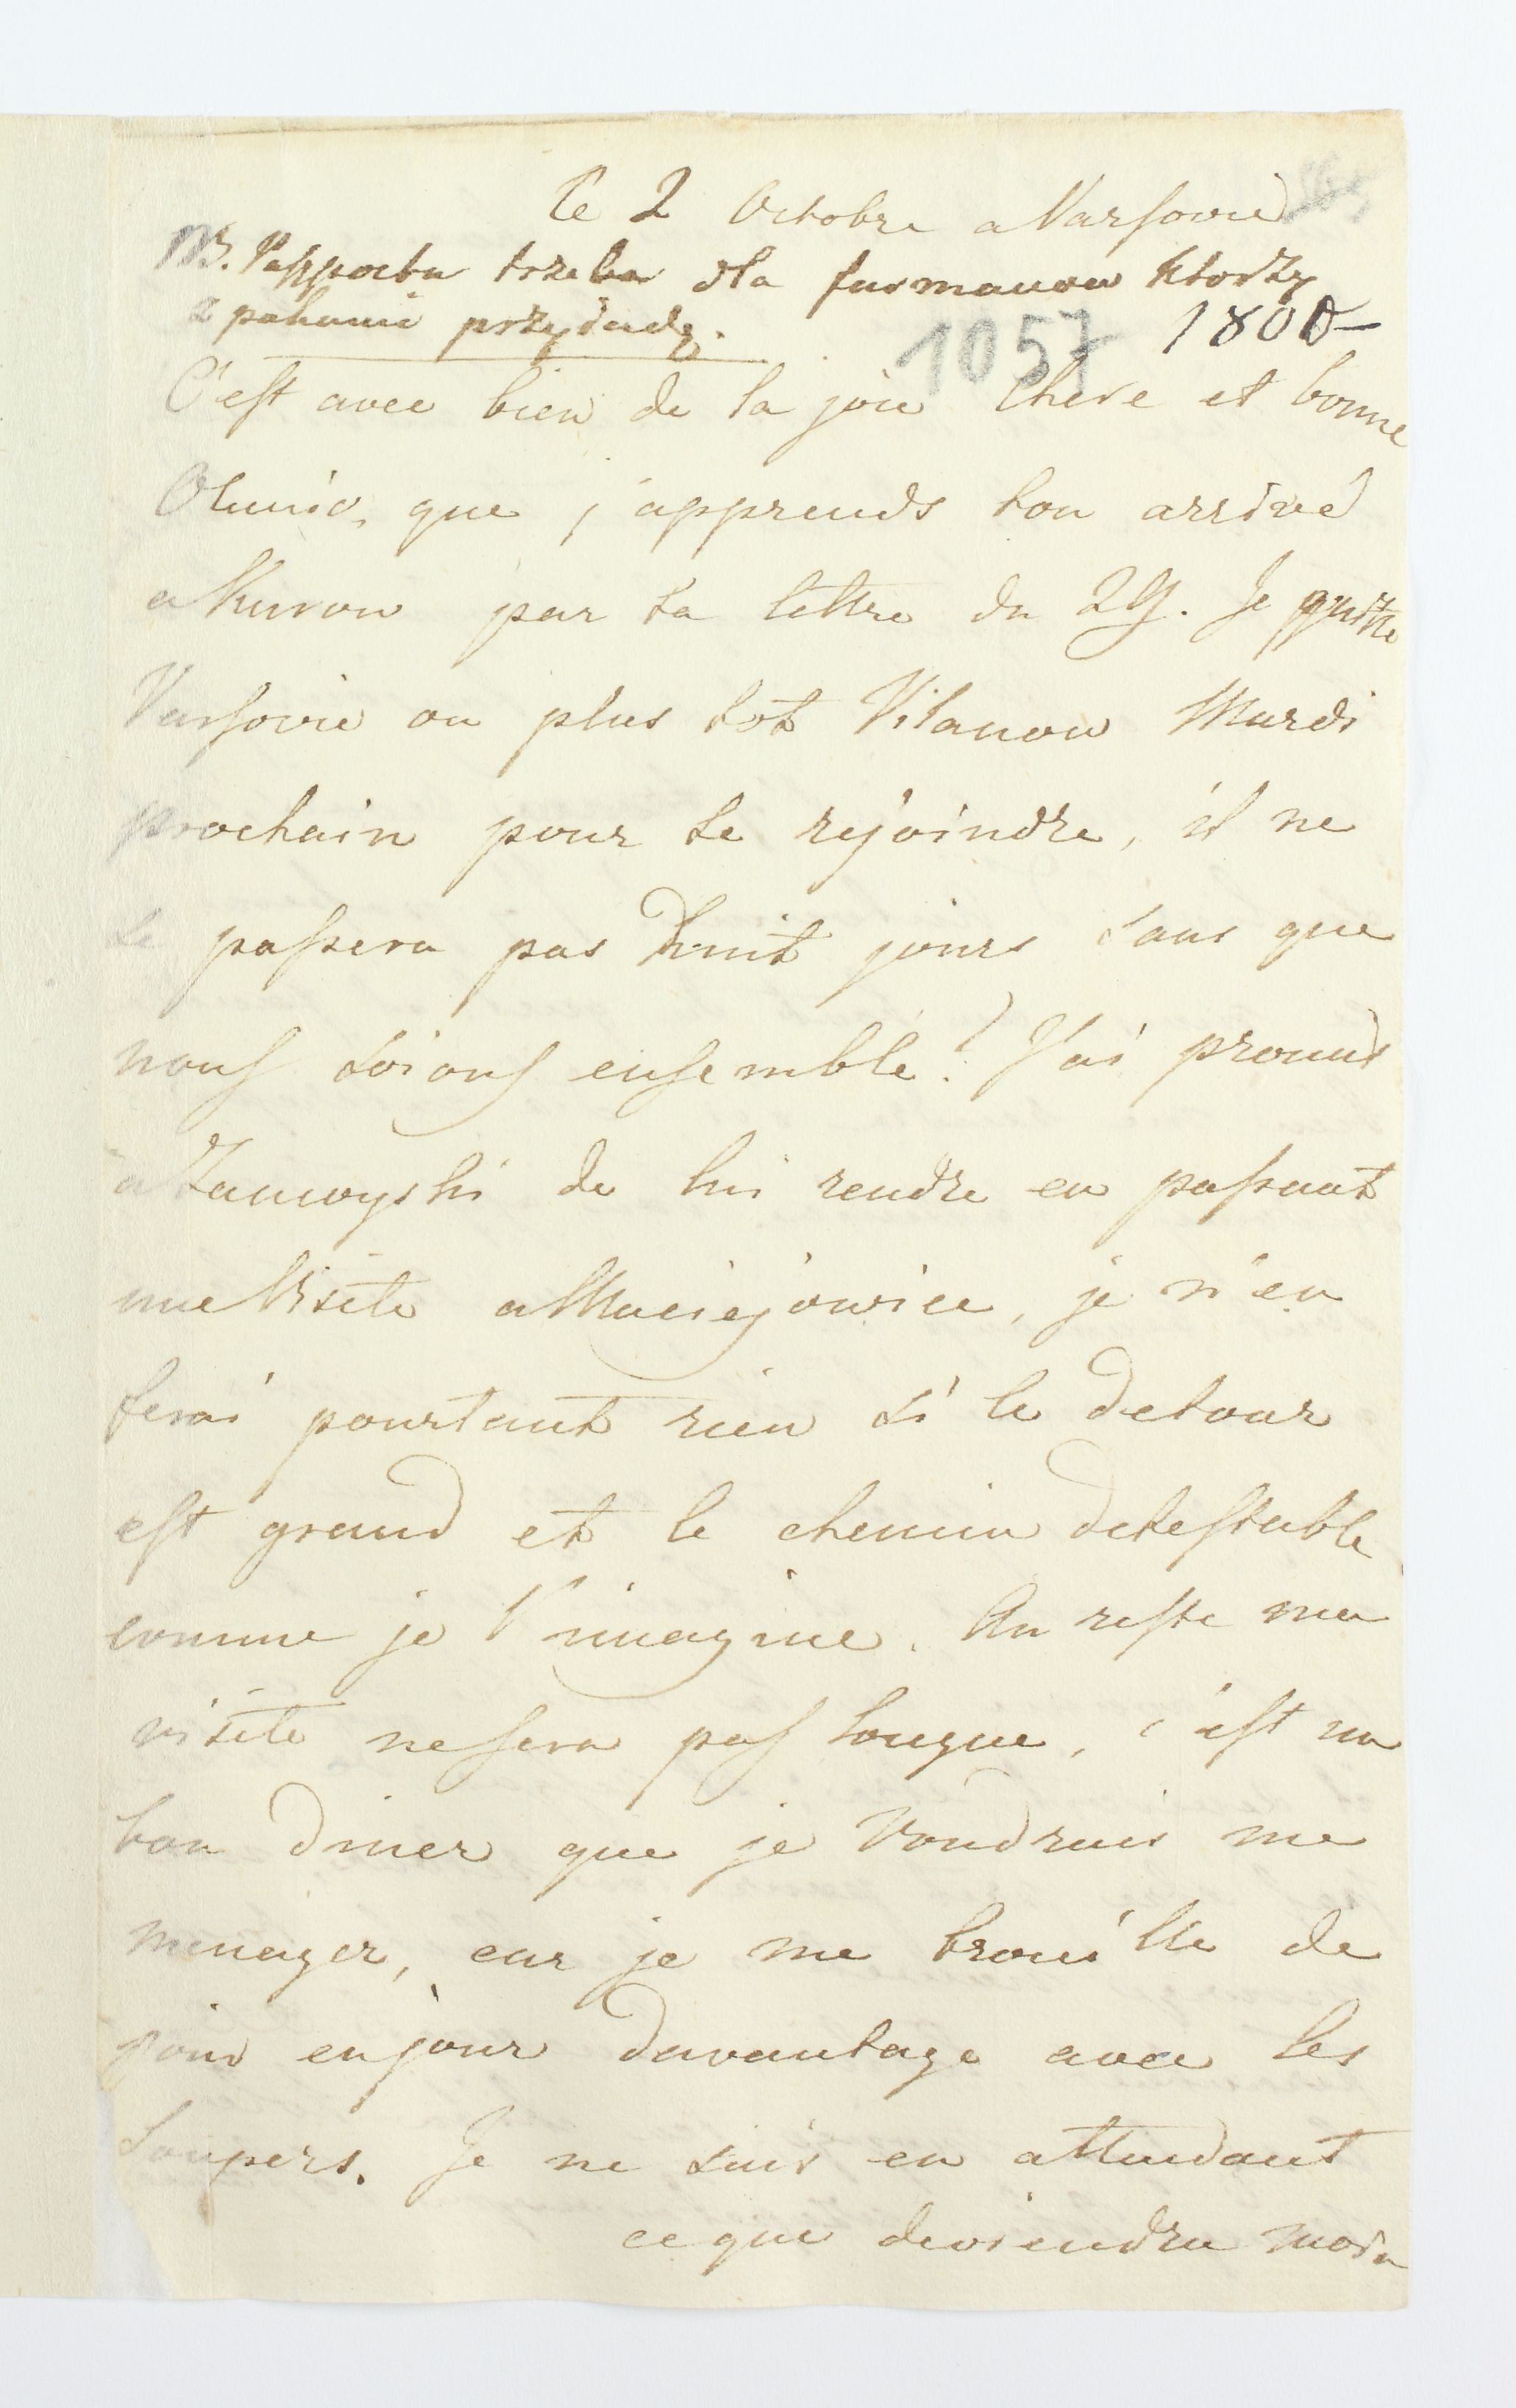 Ce 2 Octobre a Varsovie
NB. Passportu trzeba dla furmanow ktorzy
z pakami przyiadą.
1057 1800
C'est avec bien de la joie chere et bonne
Olunio, que j'apprends ton arrivé
a Kurow par ta lettre du 29. Je quitte
Varsovie ou plus tot Vilanow Mardi
prochain pour te rejoindre, il ne
se passera pas huit jours sans que
nous soions ensemble! J'ai promis
a Zamoyski de lui rendre en passant
une Visite a Maciejowice, je n'en
ferai pourtant rien si le detour
est grand et le chemin detestable
comme je l'imagine. Au reste ma
visite ne sera pas longue, c'est un
bon diner que je Voudrais me
menager, car je me brouille de
jour en jour davantage avec les
Soupers. Je ne sais en attendant
ce que deviendra mon